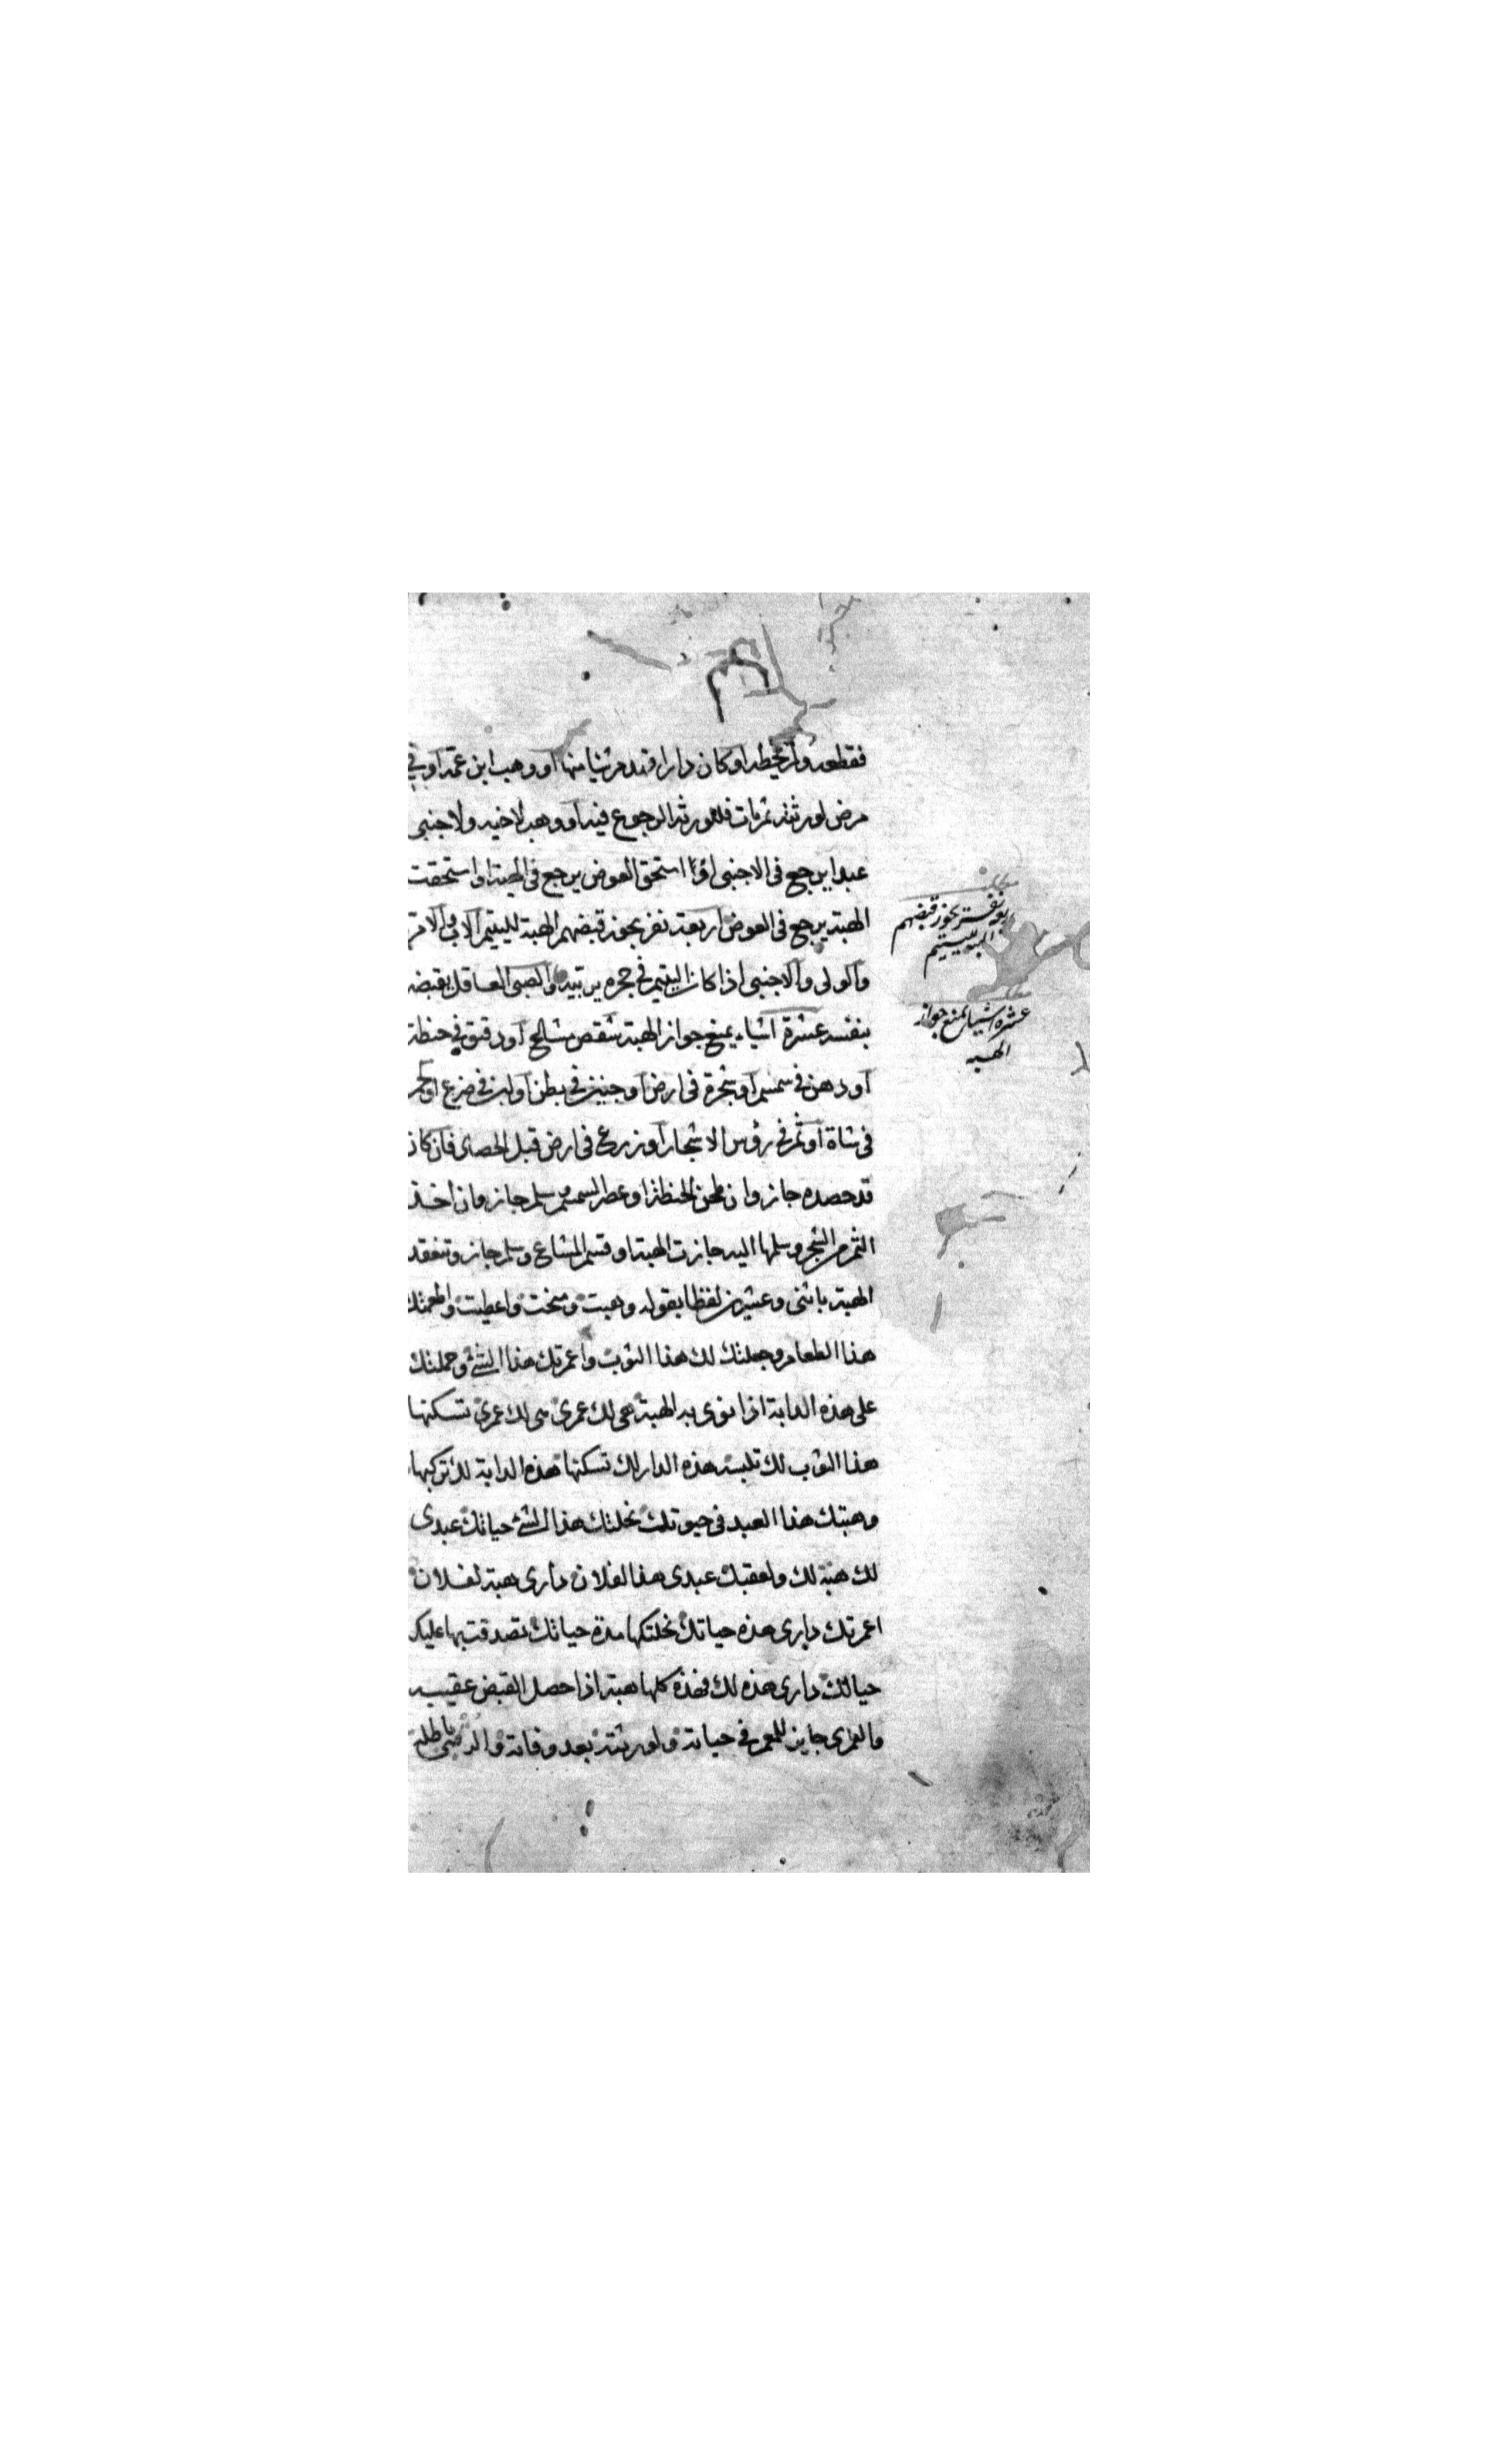 فقطعه ولم يخطه او كان دارا فهدم شيا منها او وهب ابن عمه او في
مرض لورثته ثم مات فللورثة الرجوع فيه او وهب لاخيه ولاجنبي
عبدا يرجع في الاجنبي استحق العوض يرجع في الهبة او استحقت
الهبة يرجع في العوض اربعة نفر يجوز قبضهم الهبة لليتيم الاب والام
والولى والاجنبي اذا كان اليتيم في حجره يربيه والصبي العاقل يقبضه
بنفسه عشرة اشياء يمنع جواز الهبة شقص مشاع او دقيق في حنطة
او دهن في سمسم او شجرة في ارض او جنين في بطن او لبن في ضرع او لحم
في شاة او ثمر في رؤس الاشجار او زرع في ارض قبل الحصاد فان كان
قد حصده جاز وان طحن الحنطة او عصر السمسم وسلم جاز وان اخذ
الثمر من الشجر وسلمها اليه جازت الهبة او قسم المشاع وسلم جاز وتنعقد
الهبة باثنى وعشرين لفظا بقوله وهبت ومنحت واعطيت واطعمتك
هذا الطعام وجعلتك لك هذا الثوب واعمرتك هذا الشئ وحملتك
على هذه الدابة اذا نوى به الهبة هى لك عمرى هى لك عمرى تسكنها
هذا الثوب لك تلبسه هذه الدار لك تسكنها هذه الدابة لك تركبها
وهبتك هذا العبد في حيوتك نحلتك هذا الشئ حياتك عبدى
لك هبة لك ولعقبك عبدى هذا لفلان دارى هبة لفلان
اعمرتك دارى هذه حياتك نحلتكها مدة حياتك تصدقت بها عليك
حياتك دارى هذه لك فهذه كلها هبة اذا حصل القبض عقيبه
والعمرى جايز للمعمر في حياته ولورثته بعد وفاته والرقبى باطلة
مطلب
اربعة نفر يجوز قبضهم
الهبة لليتيم
مطلب
عشرة اشيا يمنع جواز
الهبه